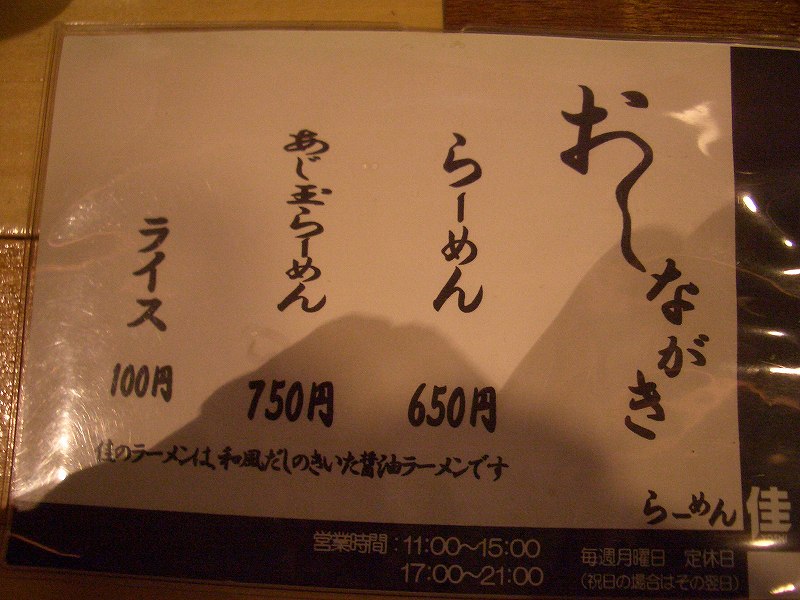 おしながき
らーめん
650円
あじ玉らーめん
750円
ライス
100円
佳のラーメンは、和風だしのきいた醤油ラーメンです
らーめん 佳
営業時間：11:00～15:00
17:00～21:00
毎週月曜日 定休日
（祝日の場合はその翌日）